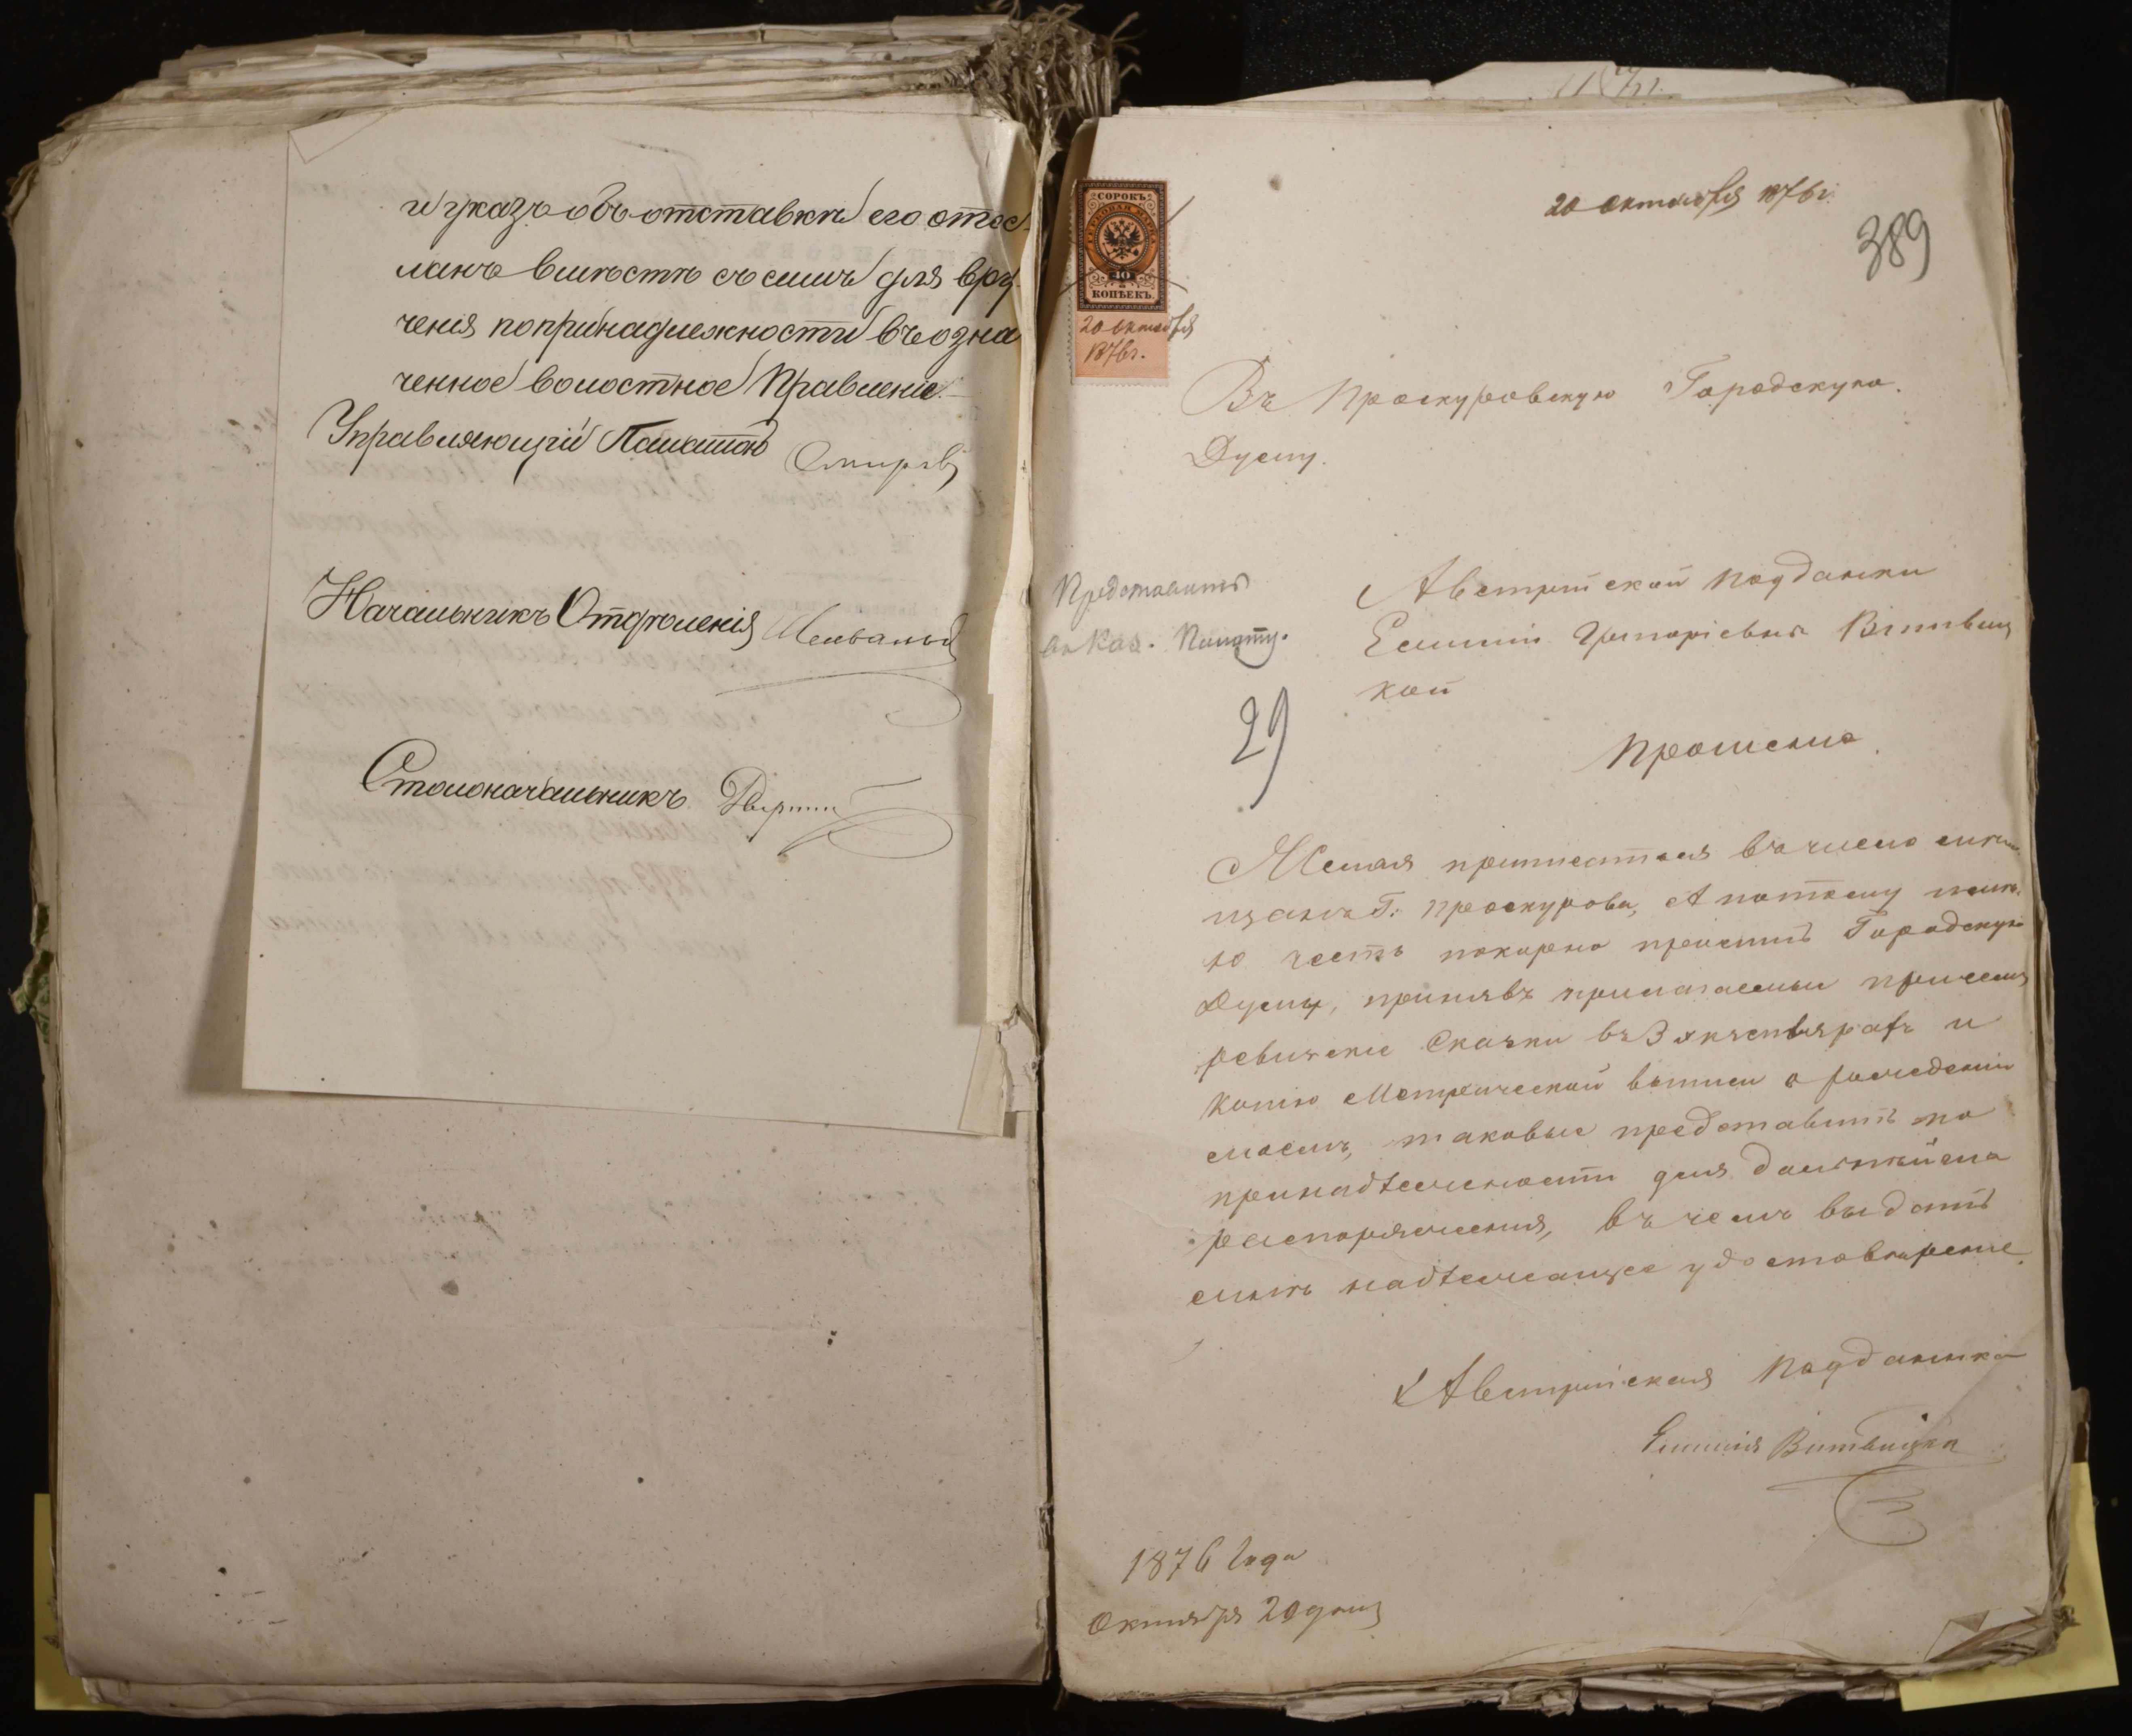 и указъ объ отставкѣ его отос-
ланъ вмѣстѣ съ симъ для вру-
ченія попринадлежности въ озна
ченное волостное Правленіе.
Управляющій Палатою
Начальникъ Отдѣленія
Столоначальникъ
20 октября 1876г.
389
СОРОКЪ
ГЕРБОВАЯ МАРКА
40
КОПѢЕКЪ
20 октября
1876г.
Въ Проскуровскую Городскую
Думу.
Представить
въ Каз. Палату.
29
Австрійской подданки
Емиліи Григоріевны Витвиц
кой
Прошеніе
Желая приписаться въ число мѣщ
щанъ Г. Проскурова, А потому имѣ
ю честь покорно просить Городскую
Думу, принявъ прилагаемыи приемы
ревизскіе Сказки въ 3 экземплярахъ и
копію Метрической выписи о рожденіи
моемъ, таковые представить по
принадлежности для дальнѣйшаго
распоряженія, въ чемъ выдать
мнѣ надлежащее удостовѣреніе.
Австрійская Подданка
Емилія Витвицка
1876 Года
Октября 20 дня